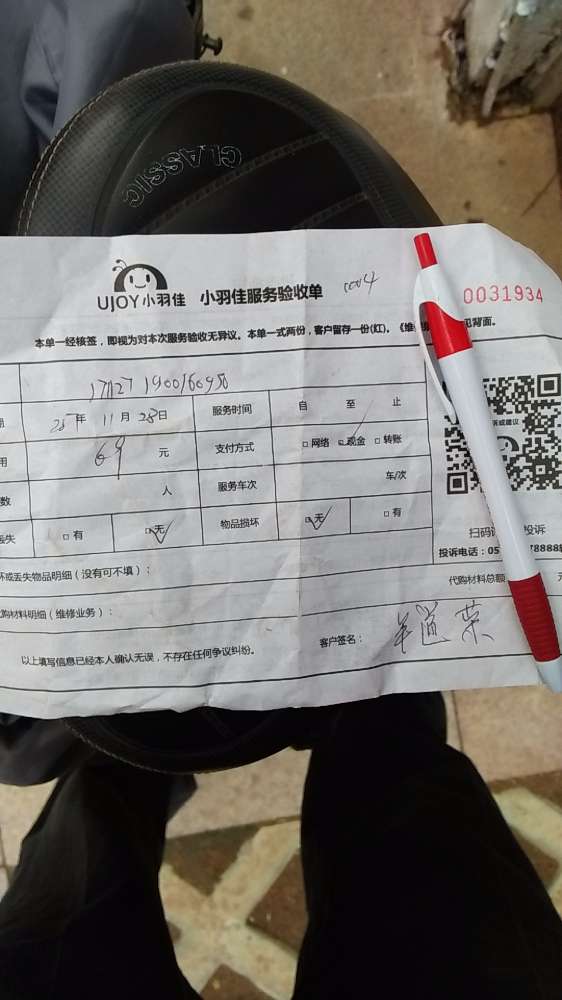 CLASSIC
UJOY小羽佳 小羽佳服务验收单
0031934
本单一经核签，即视为对本次服务验收无异议。本单一式两份，客户留存一份(红)。《维 见背面。
25年 11月 28日 服务时间 自 至 止
用 69 元 支付方式 □网络 □现金 □转账
数 人 服务车次 车/次
丢失 □有 □无 物品损坏 □无 □有
扫码 投诉
投诉电话：05 78888
坏或丢失物品明细（没有可不填）：
代购材料总额 元
代购材料明细（维修业务）：
客户签名：
以上填写信息已经本人确认无误，不存在任何争议纠纷。